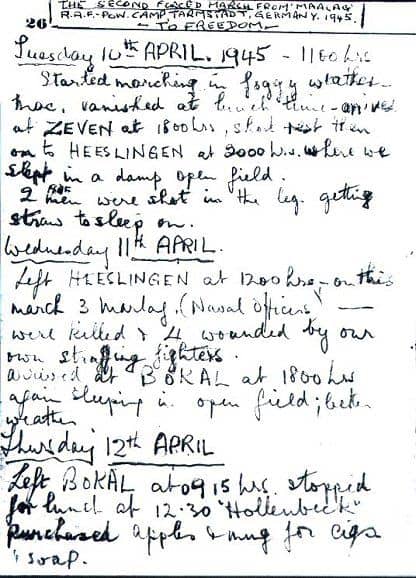 THE SECOND FORCED MARCH FROM "MAALAG"
R.A.F. P.O.W. CAMP, TARMSTADT, GERMANY. 1945.
26 - TO FREEDOM -
Tuesday 10th APRIL. 1945 - 1100 hrs
Started marching in foggy weather -
Mac. vanished at lunch time - arrived
at ZEVEN at 1800 hrs, short rest then
on to HEESLINGEN at 2000 hrs. where we
slept in a damp open field.
2 men were shot in the leg. getting
straw to sleep on.
Wednesday 11th APRIL.
Left HEESLINGEN at 1200 hrs - on this
march 3 Marlag. (Naval Officers) —
were killed & 4 wounded by our
own straffing fighters.
arrived at BOKAL at 1800 hrs
again sleeping in open field; better
weather
Thursday 12th APRIL
Left BOKAL at 09 15 hrs. stopped
for lunch at 12.30 "Hollenbeck"
purchased apples & mug for cigs
& soap.